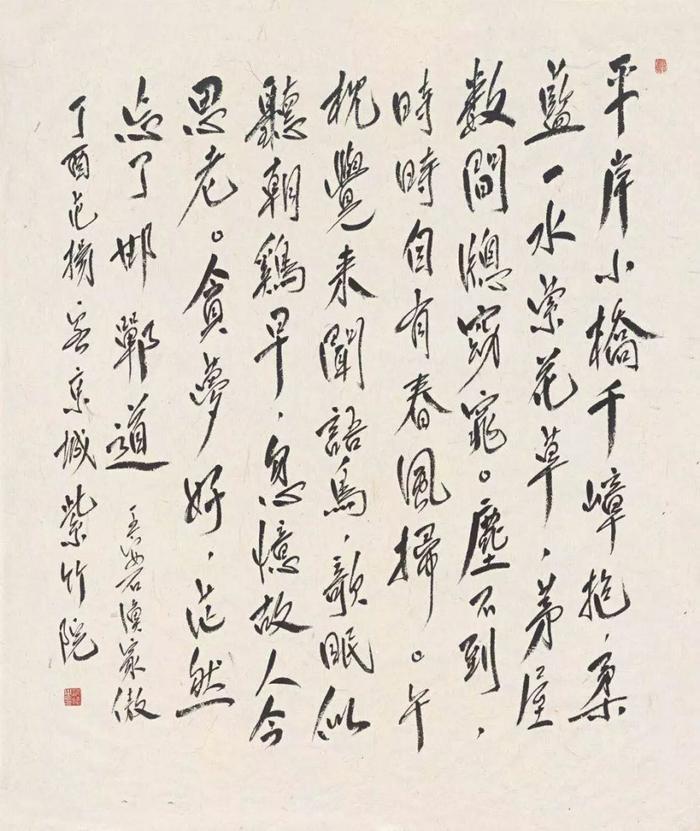 平岸小橋千嶂抱，柔
藍一水縈花草，茅屋
數間窻窈窕。塵不到，
時時自有春風掃。午
枕覺来聞語鳥，欹眠似
聽朝鷄早，忽憶故人今
思老。貪夢好，茫然
忘了邯鄲道 王安石漁家傲
丁酉范揚，客京城紫竹院